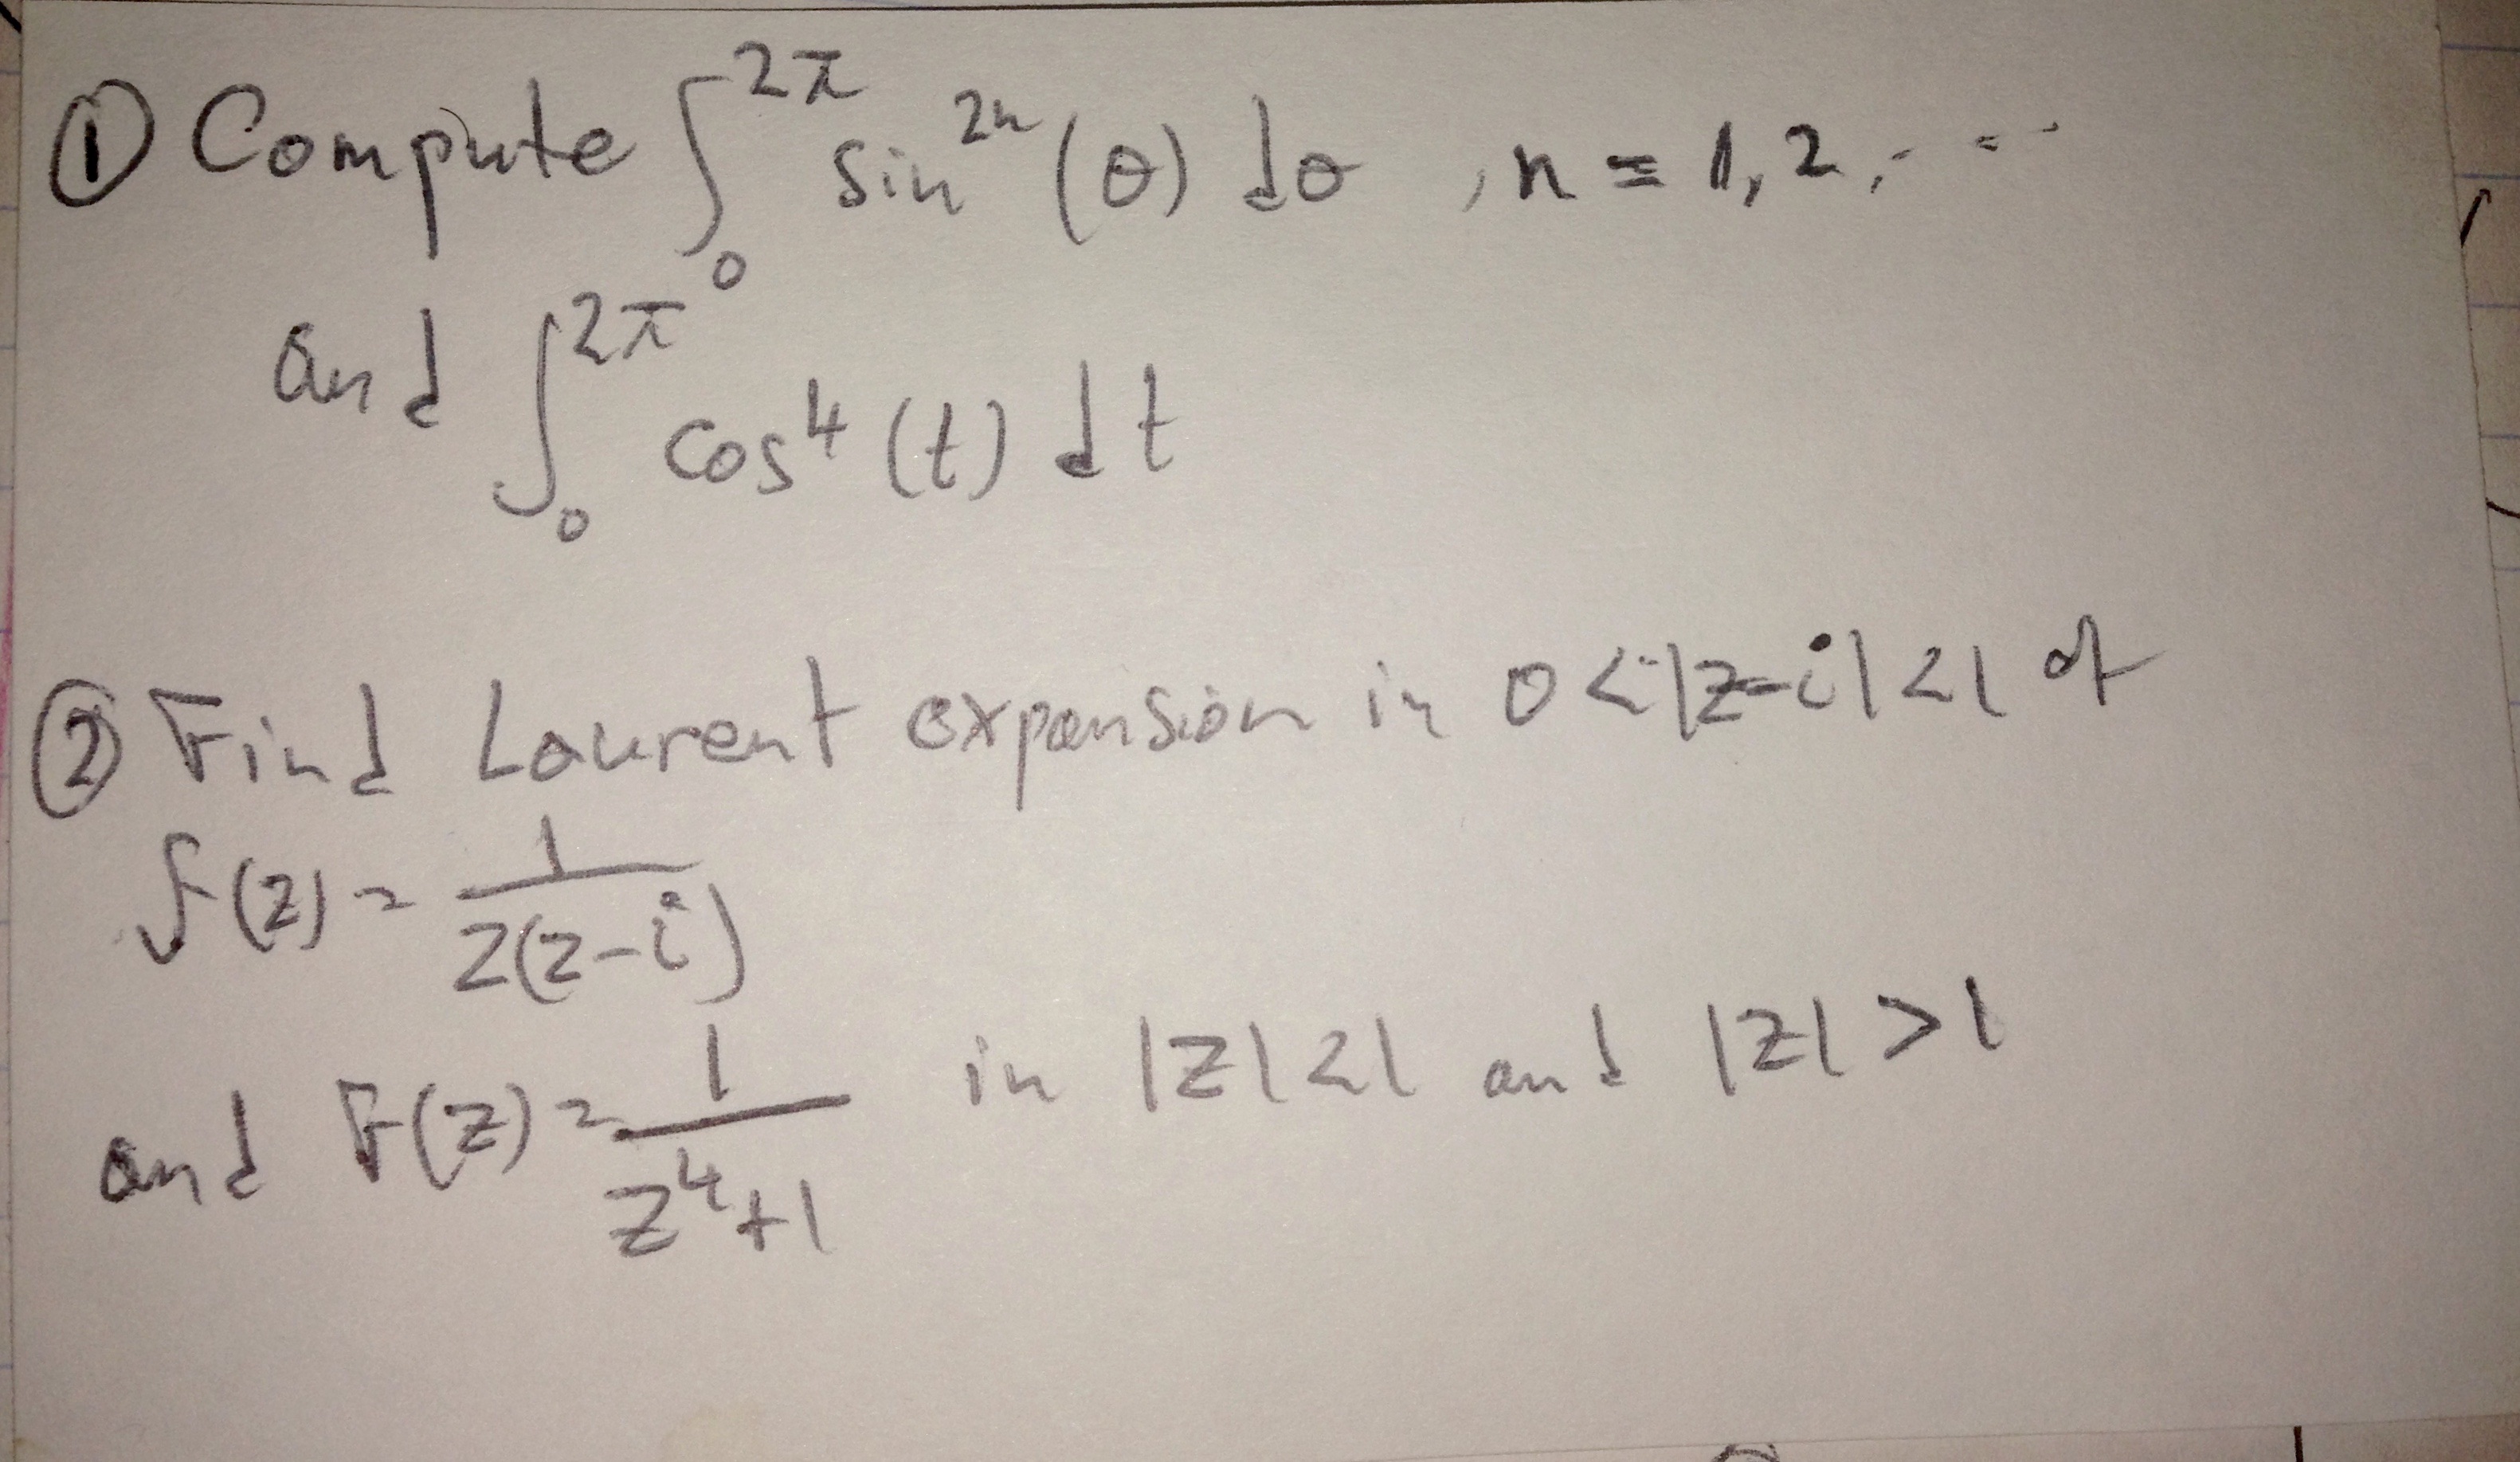 ① Compute ∫₀^{2π} sin^{2n}(θ) dθ , n = 1, 2, ...
and ∫₀^{2π} cos⁴(t) dt
② Find Laurent expansion in 0 < |z-i| < 1 of
f(z) = 1/(z(z-i))
and F(z) = 1/(z⁴+1) in |z| < 1 and |z| > 1